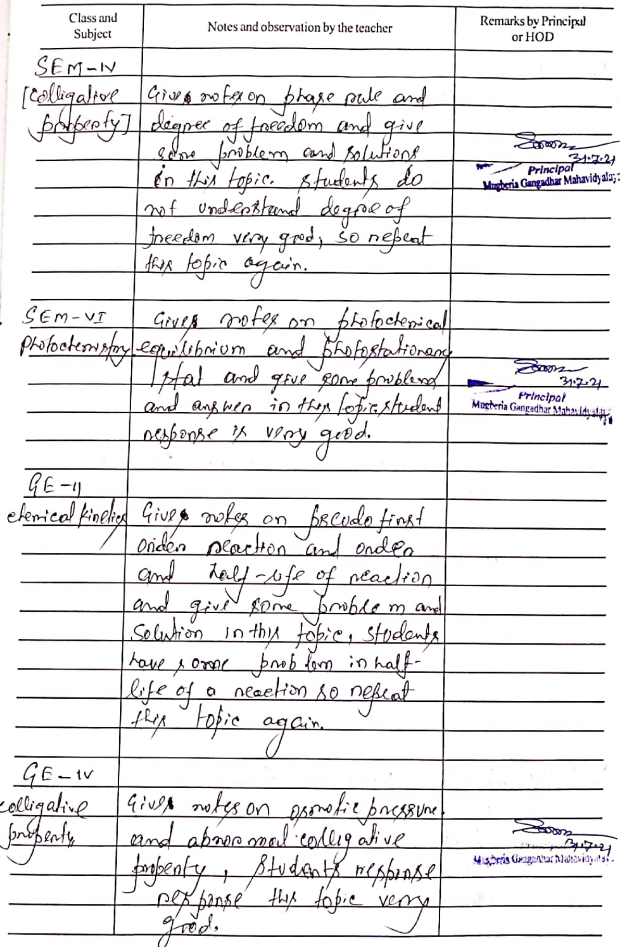 Class and Subject
Notes and observation by the teacher
Remarks by Principal or HOD
SEM-IV
[Colligative property]
Gives notes on phase rule and
degree of freedom and give
some problem and solutions
in this topic. Students do
not understand degree of
freedom very good, so repeat
this topic again.
31.7.21
Principal
Mugberia Gangadhar Mahavidyalaya
SEM-VI
Photochemistry
Gives notes on photochemical
equilibrium and photostationary
stat and give some problem
and answer in this topic. student
response is very good.
31.7.21
Principal
Mugberia Gangadhar Mahavidyalaya
GE-II
chemical kinetics
Gives notes on pseudo first
order reaction and order
and half-life of reaction
and give some problem and
solution in this topic, students
have some problem in half-
life of a reaction so repeat
this topic again.
GE-IV
colligative
property
Gives notes on osmotic pressure
and abnormal colligative
property, Students response
response this topic very
good.
31.7.21
Mugberia Gangadhar Mahavidyalaya